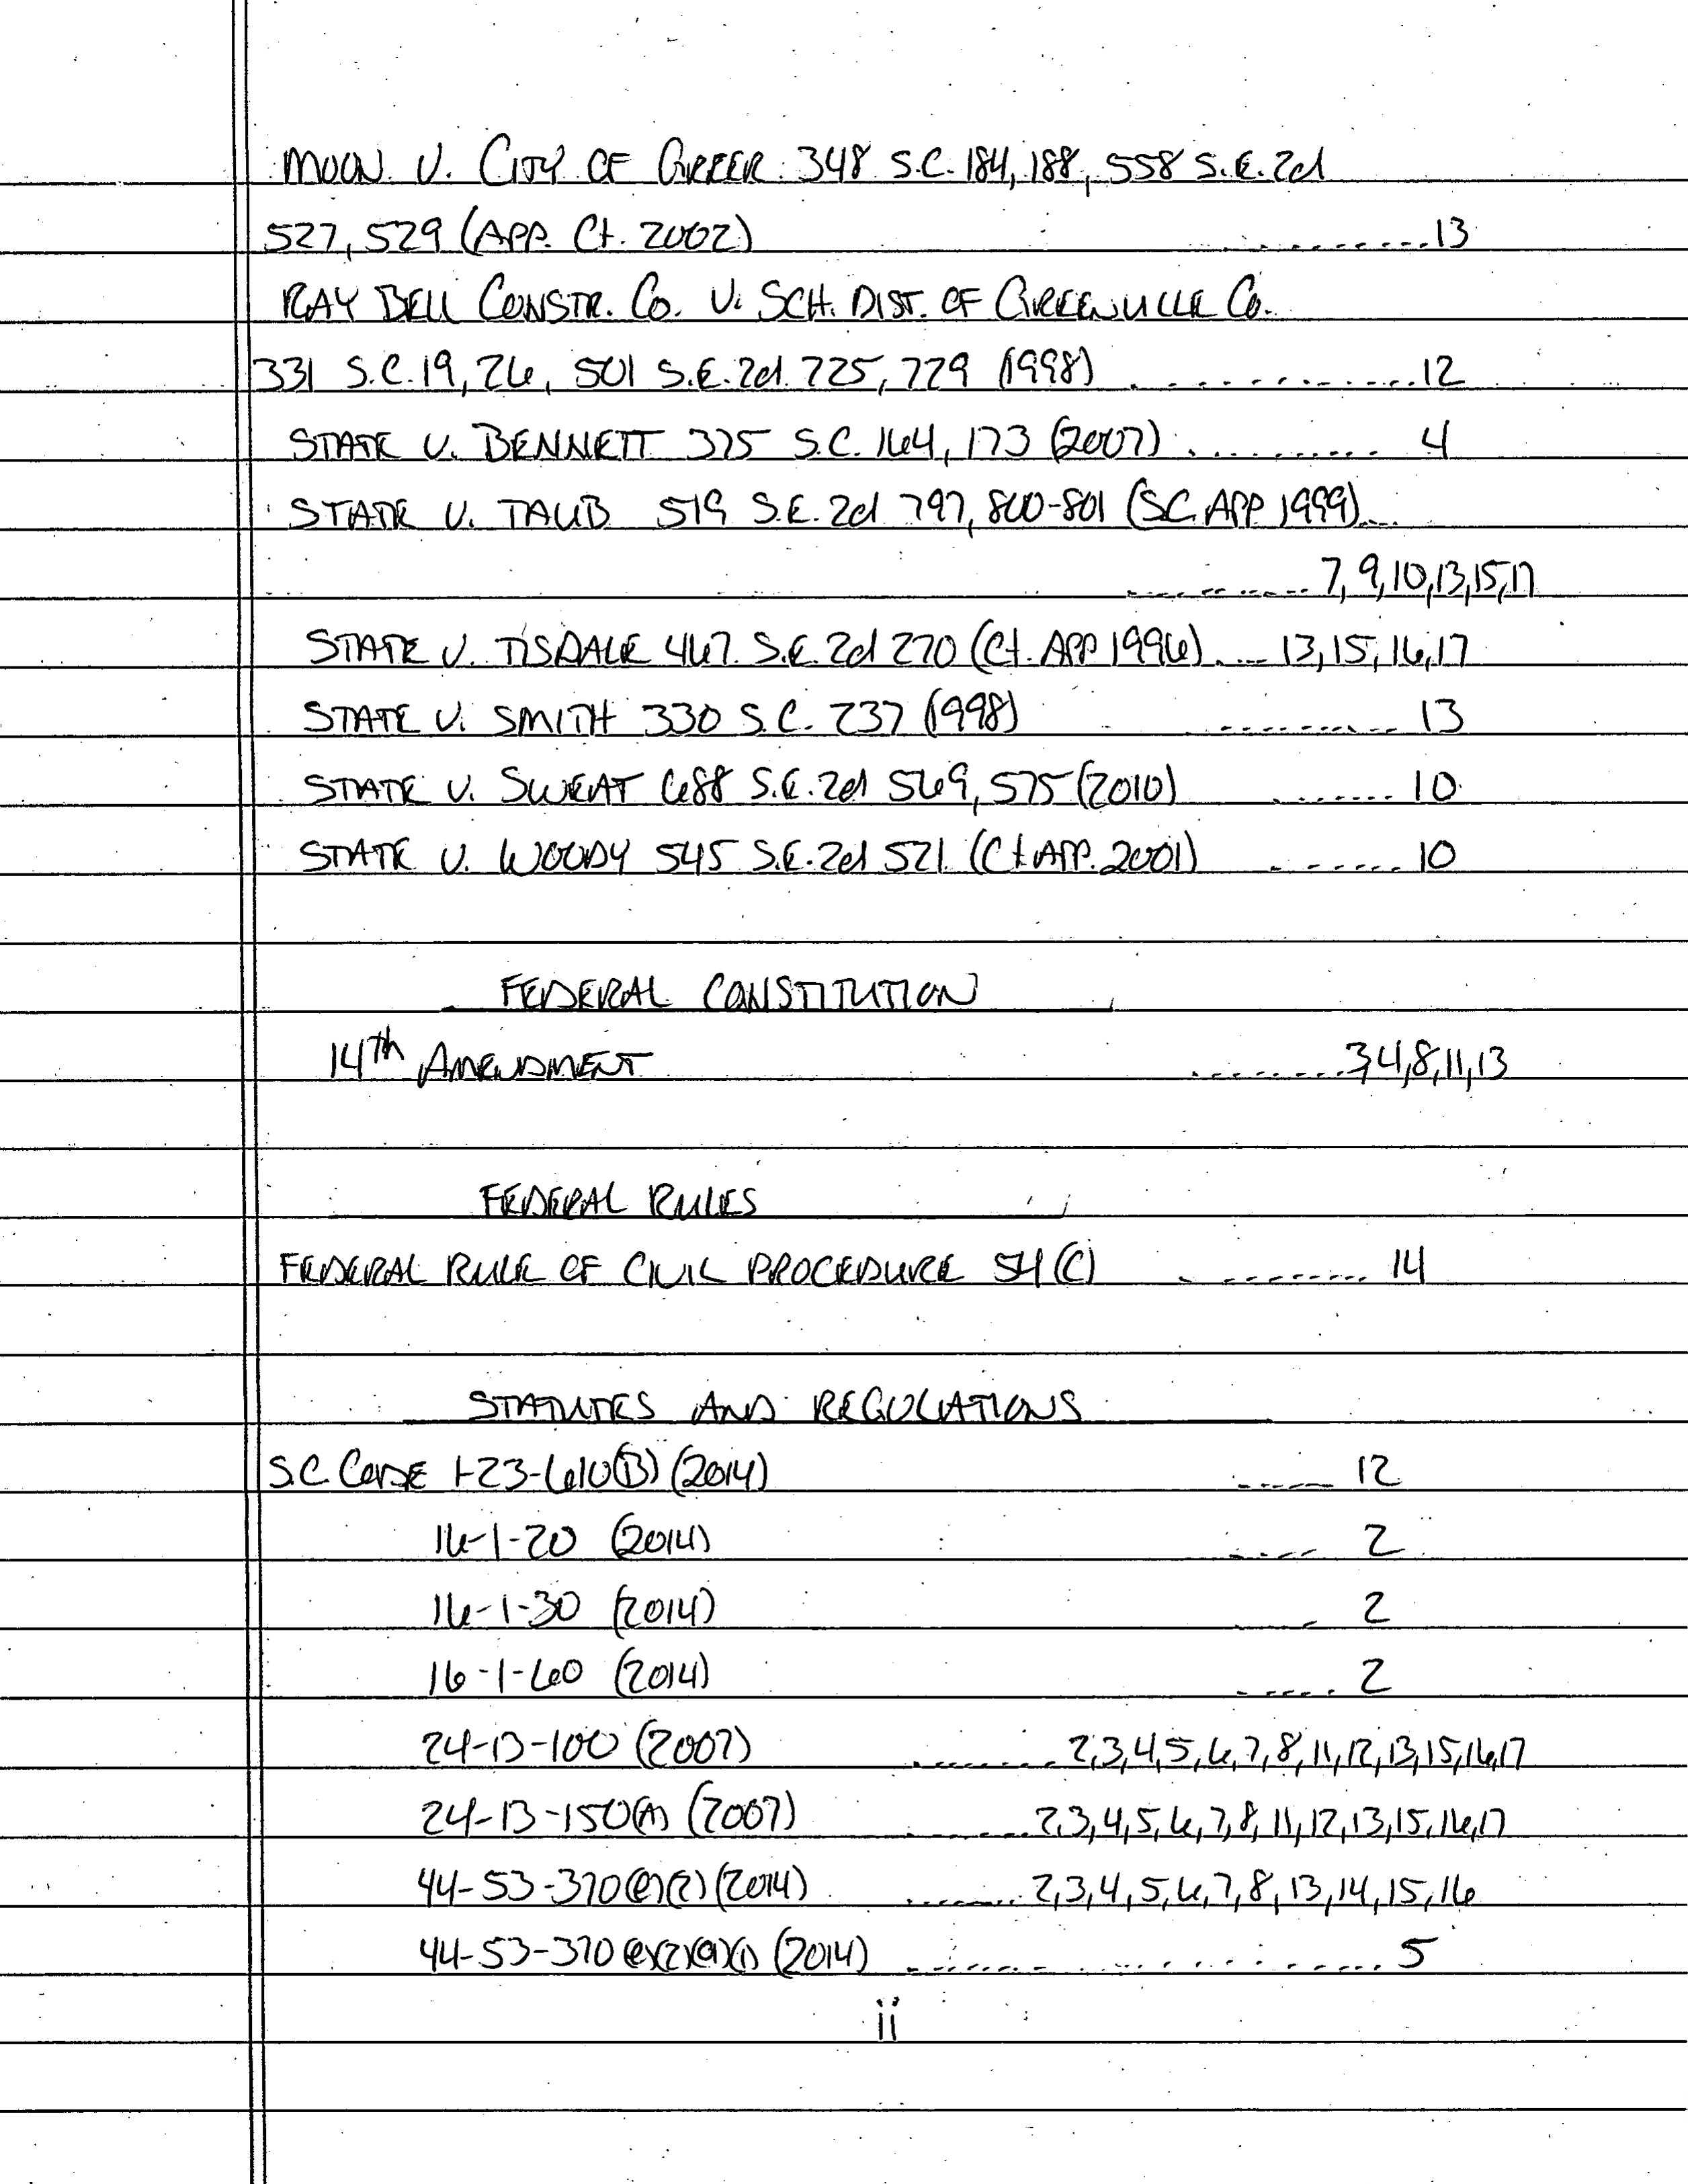 MOON V. CITY OF GREER 348 S.C. 184, 188, 558 S.E.2d
527, 529 (APP. Ct. 2002) ..........13
RAY BELL CONSTR. CO. V. SCH. DIST. OF GREENVILLE CO.
331 S.C. 19, 26, 501 S.E.2d 725, 729 (1998) ..............12
STATE V. BENNETT 375 S.C. 164, 173 (2007) .......... 4
STATE V. TAUB 519 S.E.2d 797, 800-801 (SC.APP 1999)....
........... 7, 9,10,13,15,17
STATE V. TISDALE 467 S.E.2d 270 (Ct. APP 1996) .... 13,15,16,17
STATE V. SMITH 330 S.C. 237 (1998) .......... 13
STATE V. SWEAT 688 S.E.2d 569, 575 (2010) ....... 10
STATE V. WOODY 545 S.E.2d 521 (Ct.APP.2001) ....... 10
FEDERAL CONSTITUTION
14th AMENDMENT .........3,4,8,11,13
FEDERAL RULES
FEDERAL RULE OF CIVIL PROCEDURE 54(C) ......... 14
STATUTES AND REGULATIONS
S.C. CODE 1-23-610(B) (2014) ..... 12
16-1-20 (2014) .... 2
16-1-30 (2014) .. 2
16-1-60 (2014) ..... 2
24-13-100 (2007) ........ 2,3,4,5,6,7,8,11,12,13,15,16,17
24-13-150(A) (2007) ....... 2,3,4,5,6,7,8,11,12,13,15,16,17
44-53-370(e)(2) (2014) ....... 2,3,4,5,6,7,8,13,14,15,16
44-53-370(e)(2)(a)(1) (2014) .................. 5
ii